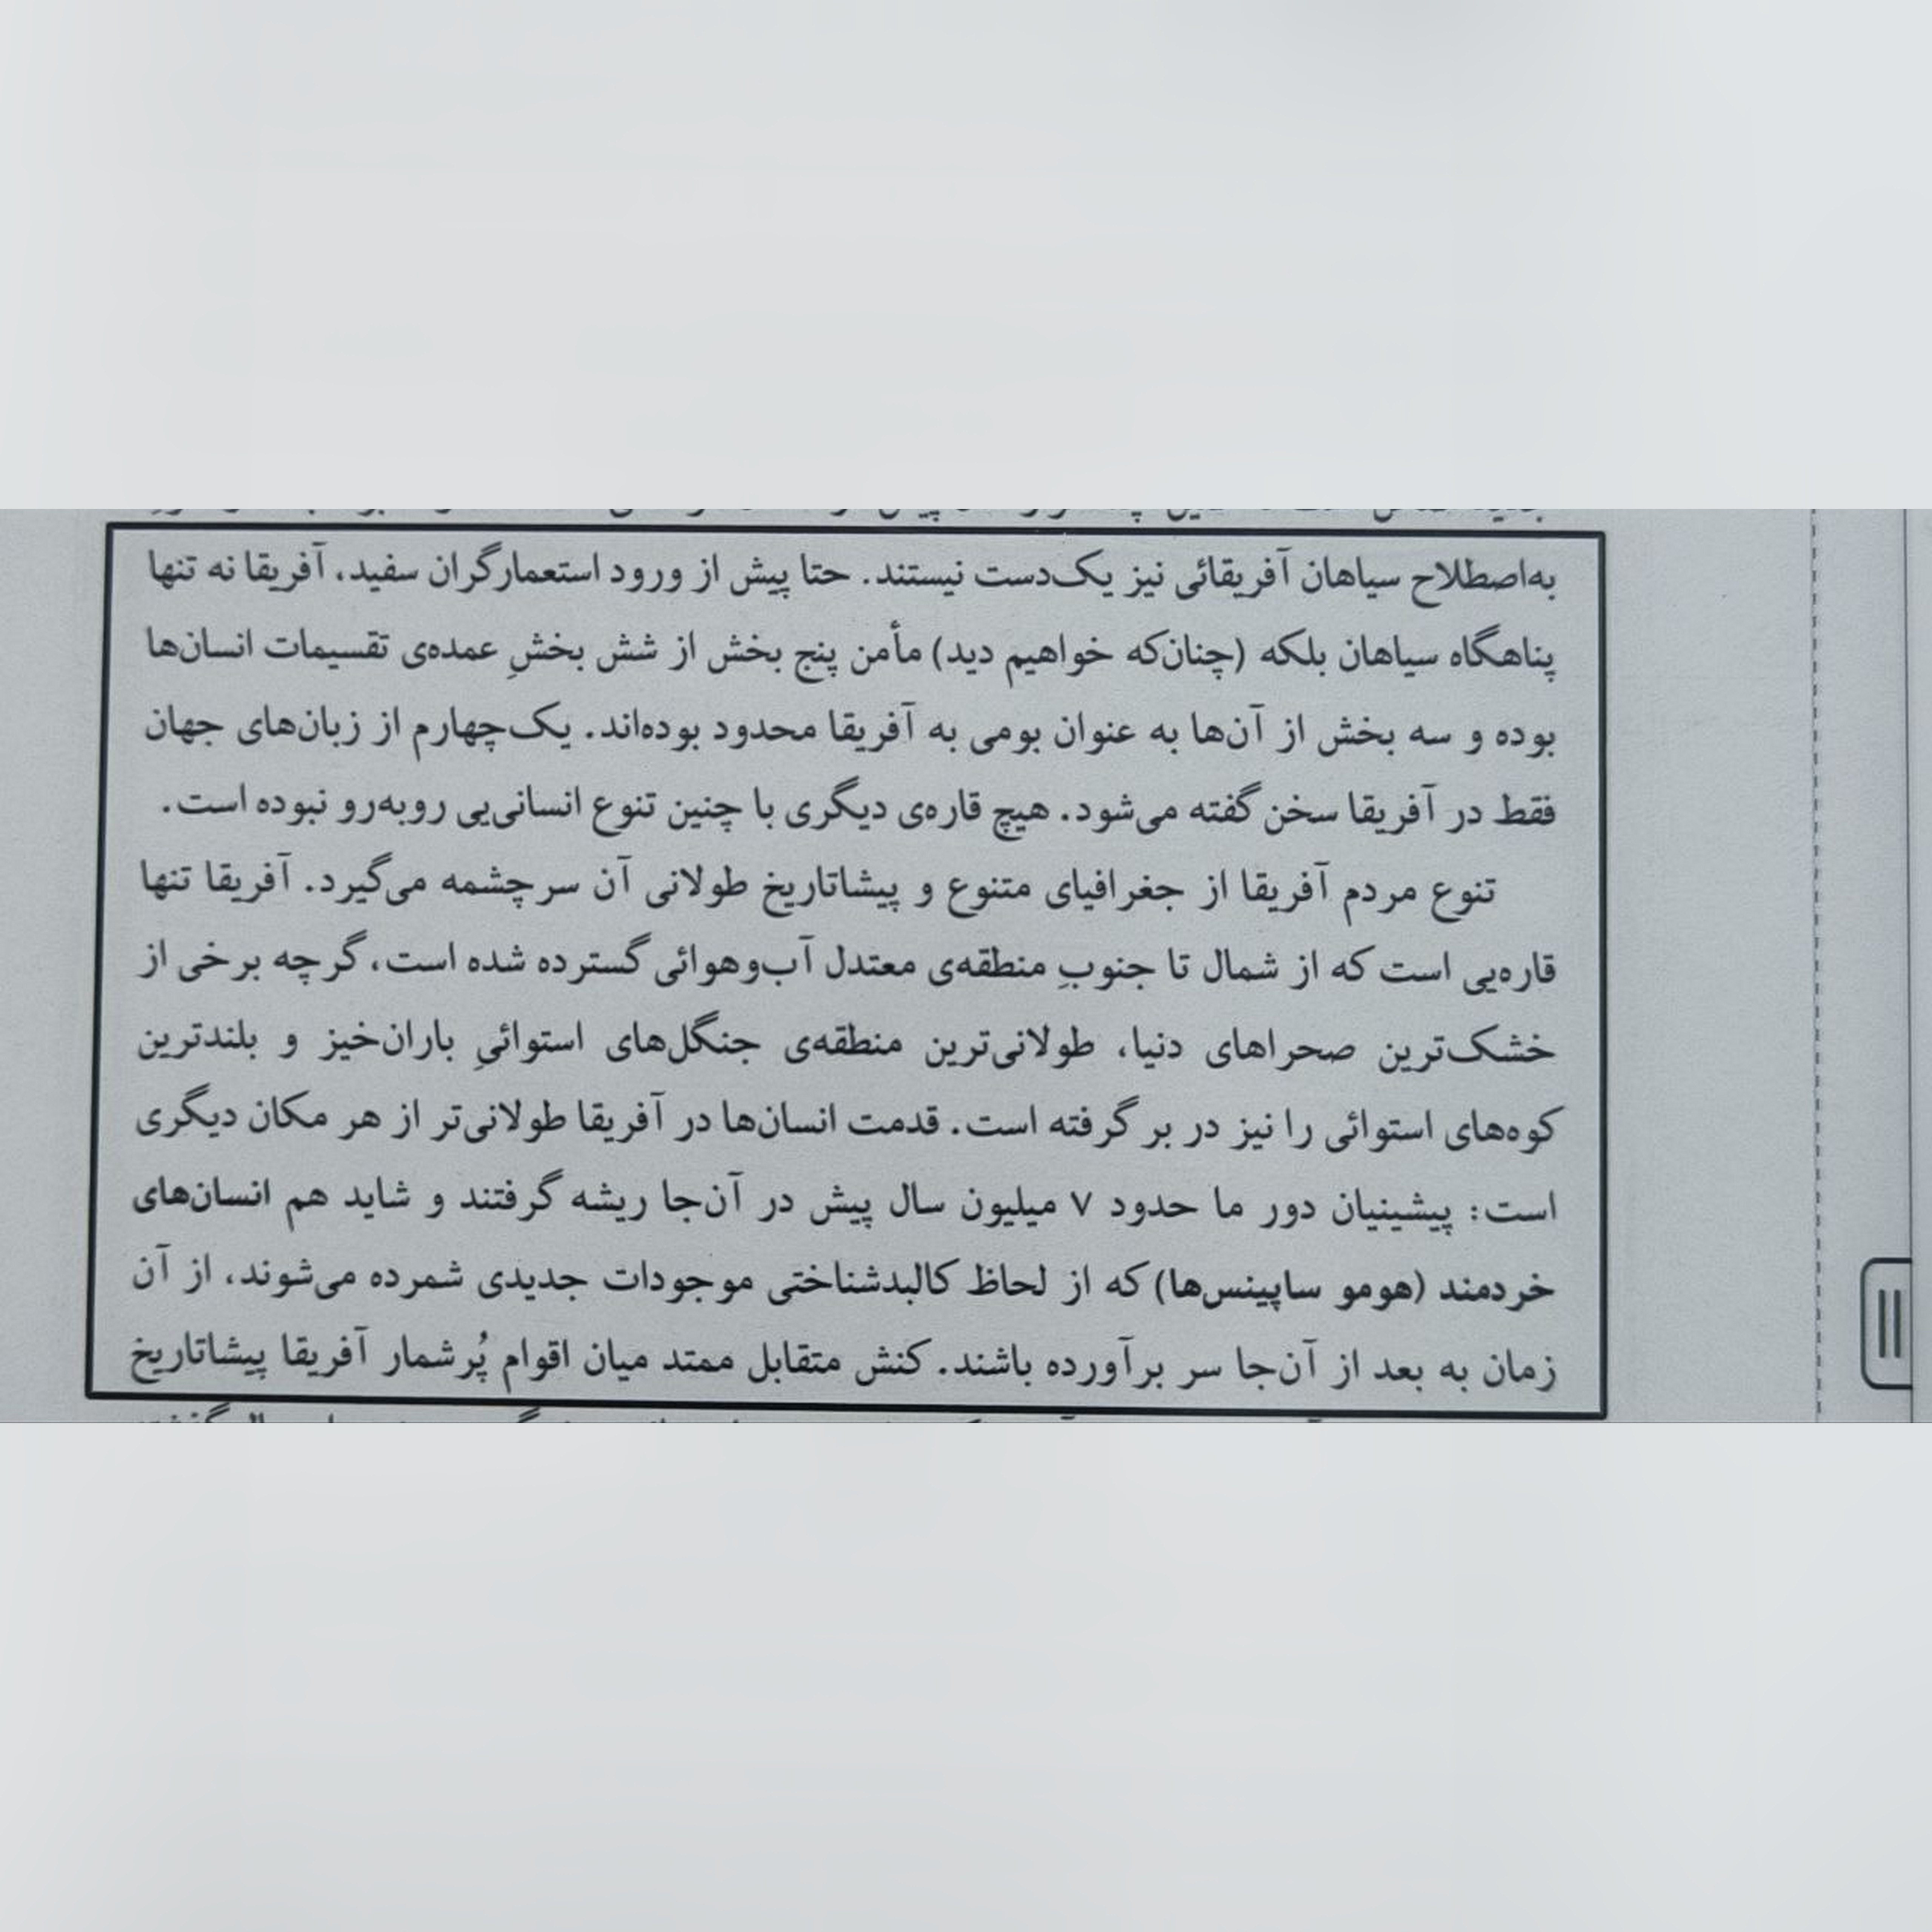 به‌اصطلاح سیاهان آفریقائی نیز یک‌دست نیستند. حتا پیش از ورود استعمارگران سفید، آفریقا نه تنها
پناهگاه سیاهان بلکه (چنان‌که خواهیم دید) مأمن پنج بخش از شش بخشِ عمده‌ی تقسیمات انسان‌ها
بوده و سه بخش از آن‌ها به عنوان بومی به آفریقا محدود بوده‌اند. یک‌چهارم از زبان‌های جهان
فقط در آفریقا سخن گفته می‌شود. هیچ قاره‌ی دیگری با چنین تنوع انسانی‌یی روبه‌رو نبوده است.
تنوع مردم آفریقا از جغرافیای متنوع و پیشاتاریخ طولانی آن سرچشمه می‌گیرد. آفریقا تنها
قاره‌یی است که از شمال تا جنوبِ منطقه‌ی معتدل آب‌وهوائی گسترده شده است، گرچه برخی از
خشک‌ترین صحراهای دنیا، طولانی‌ترین منطقه‌ی جنگل‌های استوائیِ باران‌خیز و بلندترین
کوه‌های استوائی را نیز در بر گرفته است. قدمت انسان‌ها در آفریقا طولانی‌تر از هر مکان دیگری
است: پیشینیان دور ما حدود ۷ میلیون سال پیش در آن‌جا ریشه گرفتند و شاید هم انسان‌های
خردمند (هومو ساپینس‌ها) که از لحاظ کالبدشناختی موجودات جدیدی شمرده می‌شوند، از آن
زمان به بعد از آن‌جا سر برآورده باشند. کنش متقابل ممتد میان اقوام پُرشمار آفریقا پیشاتاریخ